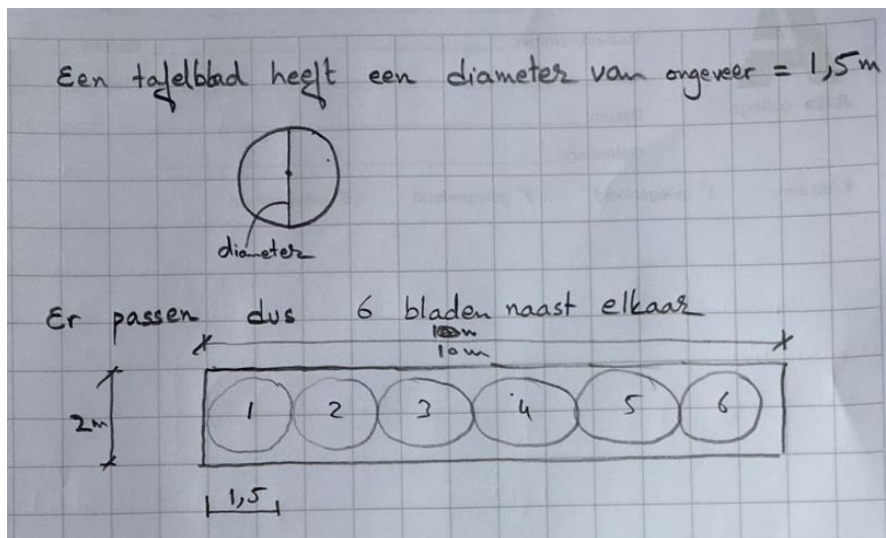 Een tafelblad heeft een diameter van ongeveer = 1,5m
diameter
Er passen dus 6 bladen naast elkaar
10m
2m
1 2 3 4 5 6
1,5